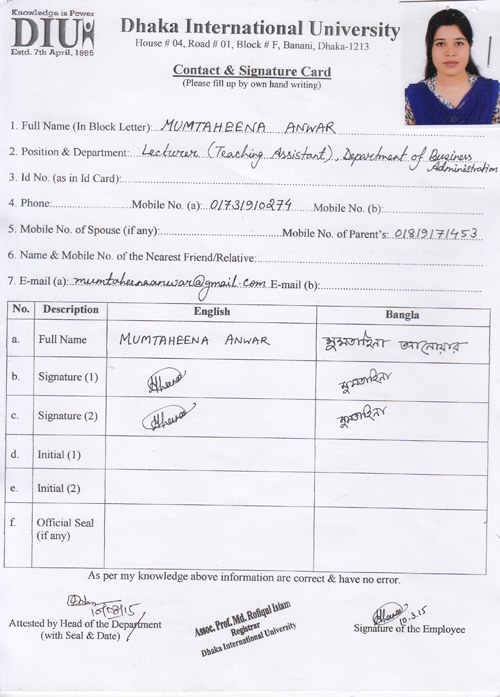 Knowledge is Power
DIU
Estd. 7th April, 1995
Dhaka International University
House # 04, Road # 01, Block # F, Banani, Dhaka-1213
Contact & Signature Card
(Please fill up by own hand writing)
1. Full Name (In Block Letter): MUMTAHEENA ANWAR
2. Position & Department: Lecturer (Teaching Assistant), Department of Business Administration
3. Id No. (as in Id Card):
4. Phone: Mobile No. (a): 01731910274 Mobile No. (b):
5. Mobile No. of Spouse (if any): Mobile No. of Parent's: 01819171453
6. Name & Mobile No. of the Nearest Friend/Relative:
7. E-mail (a): mumtaheenaanwar@gmail.com E-mail (b):
No. Description English Bangla
a. Full Name MUMTAHEENA ANWAR মুমতাহিনা আনোয়ার
b. Signature (1) Heena মুমতাহিনা
c. Signature (2) Heena মুমতাহিনা
d. Initial (1)
e. Initial (2)
f. Official Seal
(if any)
As per my knowledge above information are correct & have no error.
10/03/15
Attested by Head of the Department
(with Seal & Date)
Assoc. Prof. Md. Rofiqul Islam
Registrar
Dhaka International University
Heena 10.3.15
Signature of the Employee